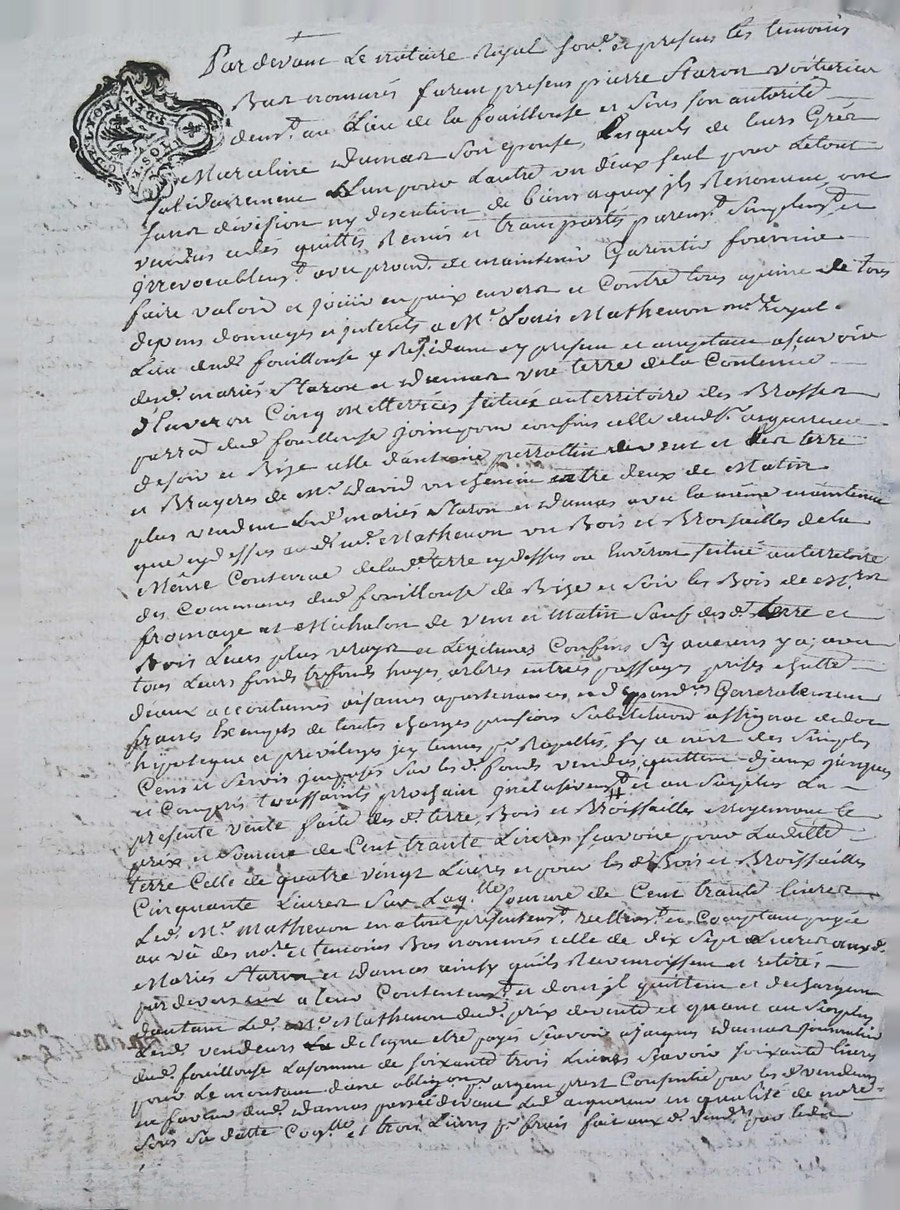 Par devant Le notaire Royal sous.é et presens les temoins
Bas nommés furent presens pierre Staron voiturier
demt. au Lieu de la fouillouse et sous son autorité
Marceline Damas son epouse, Lesquels de leurs Gréz
solidairement L'un pour L'autre un deux seul pour Letout
sans division ny discution de biens aquoy ils Renoncent, ont
vendus cedés quittés Remis et transportés purent. Simplent. et
irrevocablent. avec prom. de maintenir Garentir fournir
faire valoir et jouir en paix envers et Contre tous apeine de tous
depens domages interets a Me. Louis Mathevon nore. Royal
Lieu dud. fouillouse y Residant cy present et aceptant ascavoir
desd. mariés Staron et Damas une terre dela Contenüe
d'Environ Cinq metterées située auterritoire des Brosses
parroi. dud. fouillouse joint pour confins celle dudt. acquereur
de soir et Bize celle d'antoine perrottin de vent et les terre
et Bruyeres de Mr. David un chemin entre deux de Matin
plus vendent Lesd. mariés Staron et Damas avec la même maintenüe
que cydessus audt. Me. Mathevon un Bois et Broissailles dela
Même Contenüe delade. terre cydessus ou Environ situé auterritoire
des Communes dud. fouillouse de Bize et soir les Bois de
fromage et Michalon de vent et Matin sauf desd. terre et
Bois Leurs plus vrays et Legitimes Confins s'y aucuns y a; avec
tous Leurs fonds trefonds hayes arbres entrées passages prises chutte
d'eaux accoutumés aisances apartenances et dependces. Generalement
francs Exempts de toutes charges pensions substitution assignac dedot
hipoteque et previleges jcy tenus pr. Rapellés, s'y a n'est des simples
Cens et servis jmposés sur lesd. fonds vendus, quittes diceux jusques
et Compris toussaints prochain inclusivent. et au surplus La
presente vente faite desd. terre, Bois et Broissailles Moyennant le
prix et somme de Cent trante Livres scavoir pour Laditte
terre Celle de quatre vingt Livres et pour lesd. Bois et Broissailles
Cinquante Livres sur Laqlle. somme de Cent trante livres
Led. Me. Mathevon en a tout presentent. reellemt. et Comptant payée
au vü des nore. et temoins Bas nommés celle de dix sept Livres auxd.
Mariés Staron et Damas ainsy quils Reconnoissent et retirés
par devers eux a leur Contentemt. et dont jl quittent et dechargent
dautant Led. Me. Mathevon dud. prix devente et quant au surplus
Lesd. vendeurs Le delegue etre payés scavoir ajacques Damas
dud. fouillouse Lasomme de soixante trois Livres scavoir soixante livres
pour Le montant d'une obligon. pr. argent prest Consentie par lesd. vendeurs
en faveur dud. Damas passée devant Led. acquereur en qualité de nore.
sous sa datte Coqlle. et trois Livres pr. frais fait auxd. vendrs. par ledit